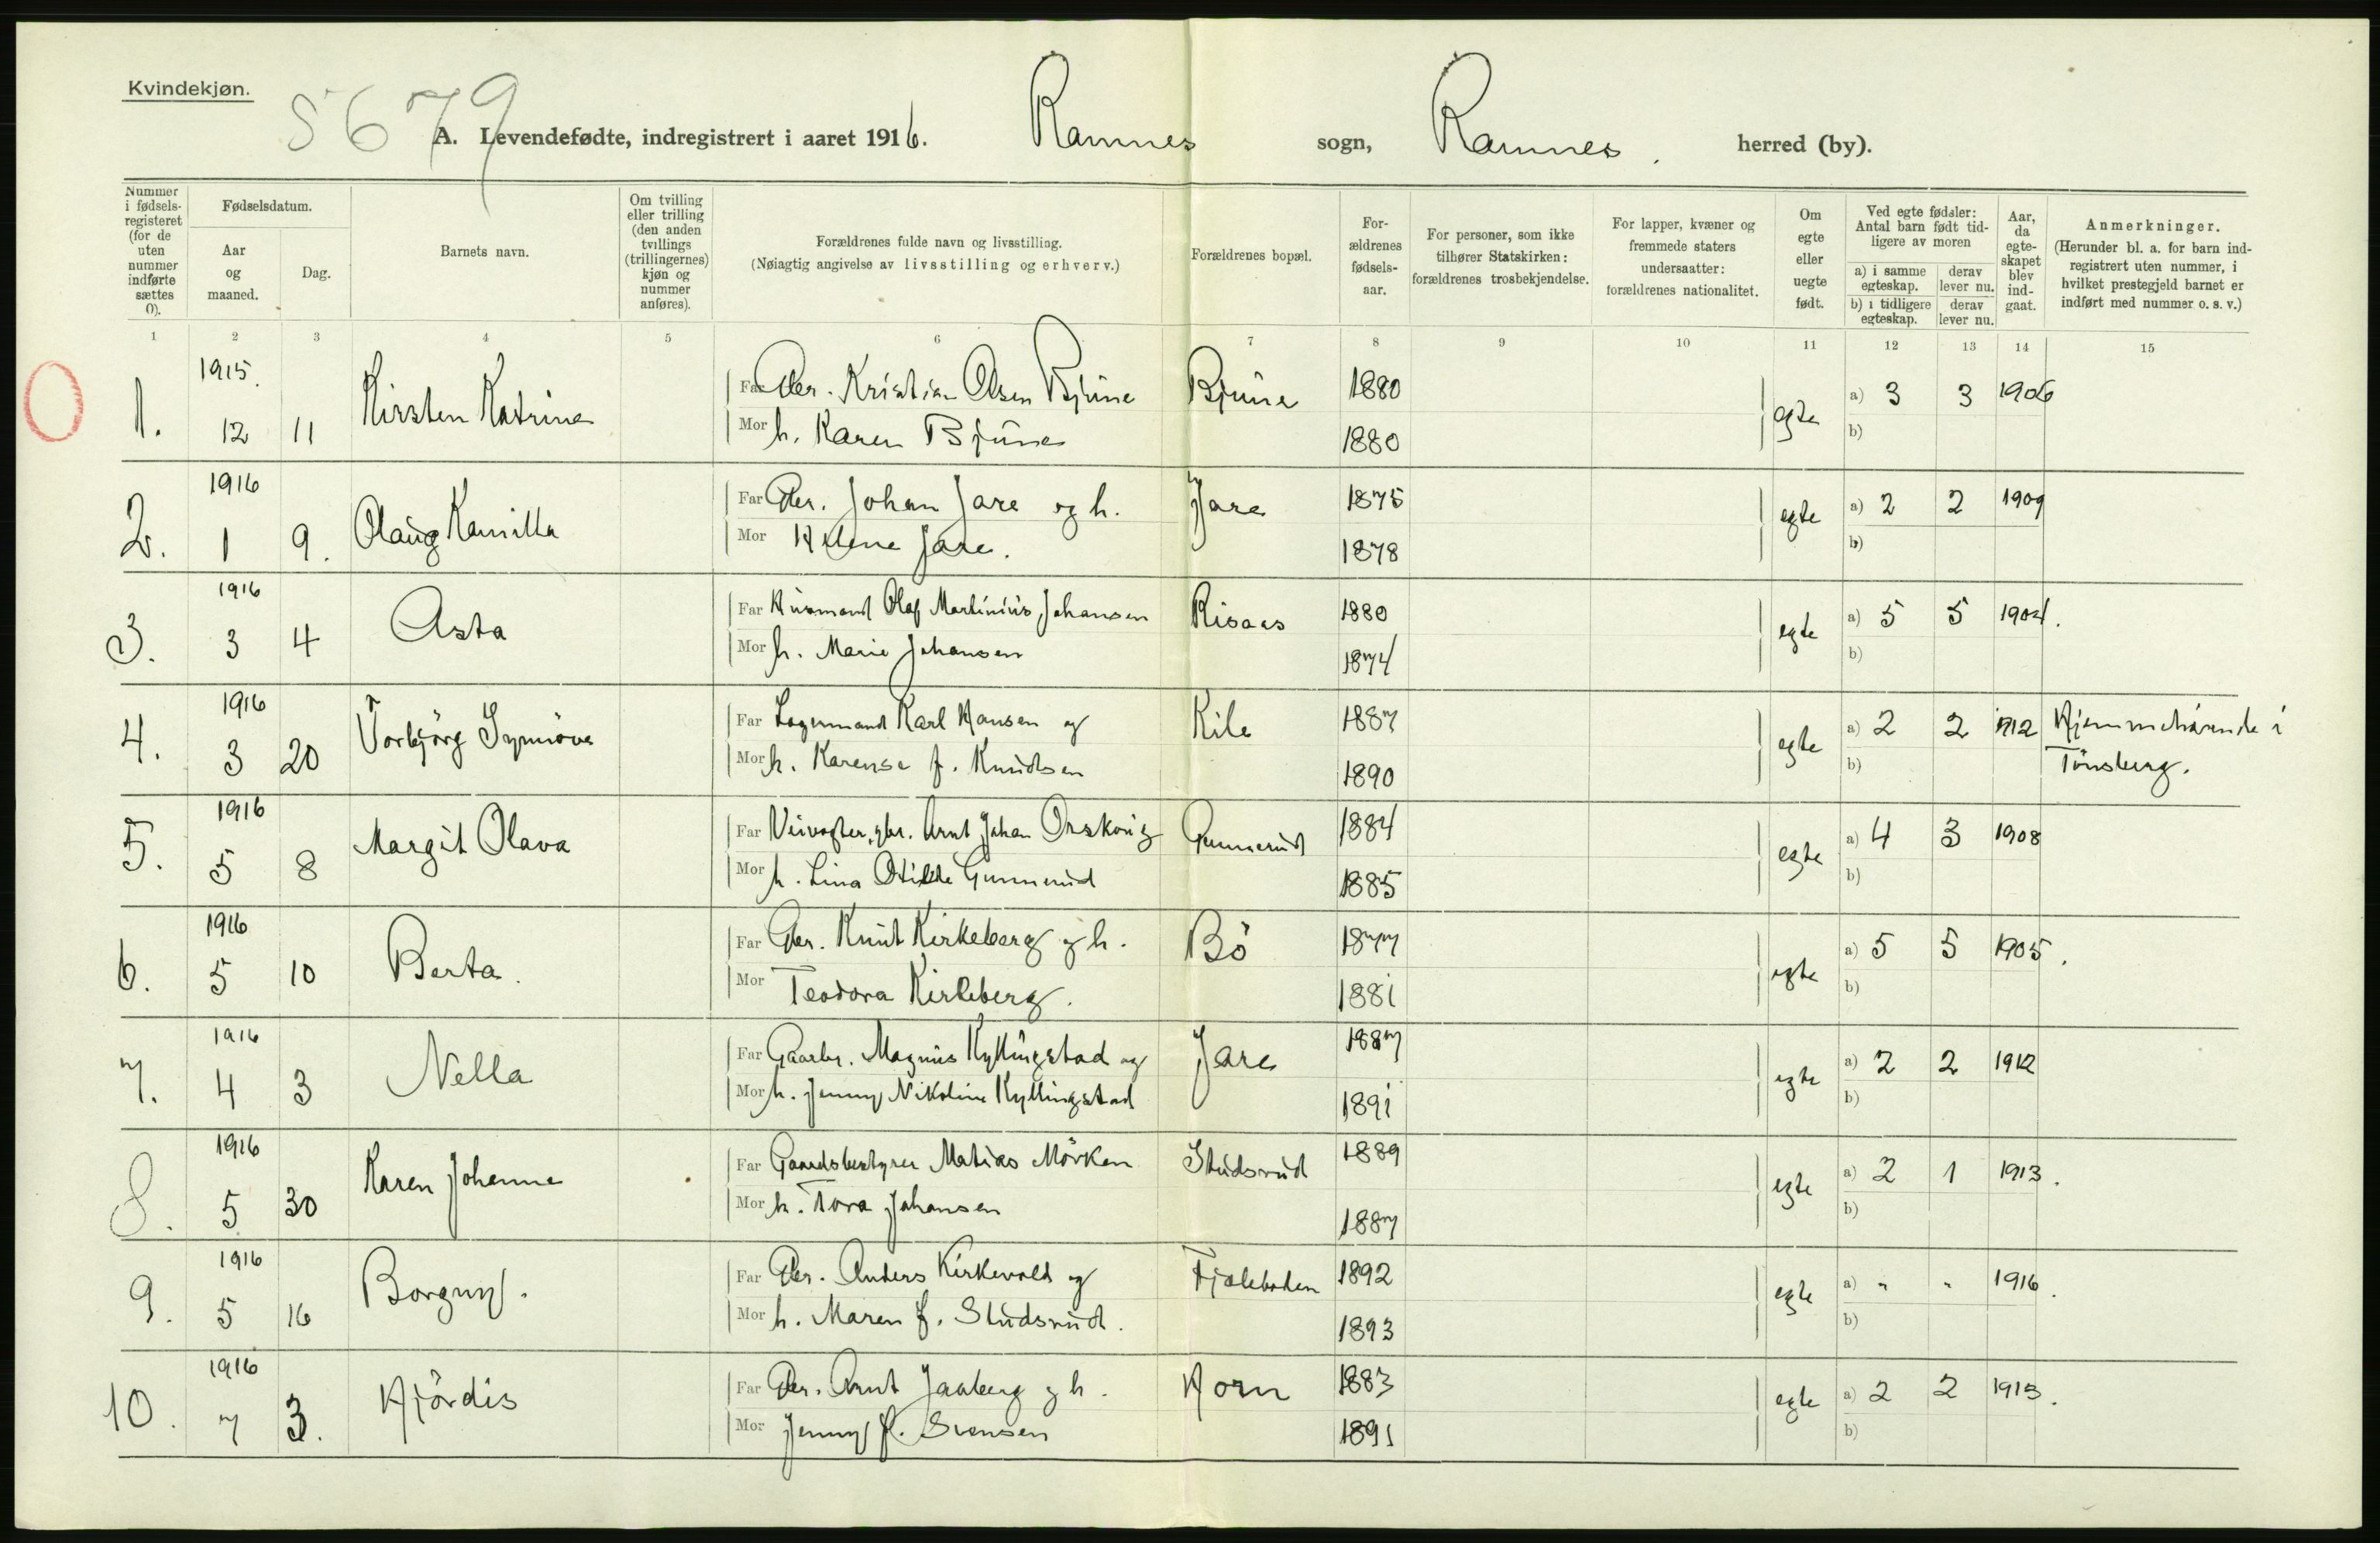 Kvindekjøn.
5679
A. Levendefødte, indregistrert i aaret 1916. Ramnes sogn, Ramnes. herred (by).
Nummer i fødsels-registeret (for de uten nummer indførte sættes 0).
Fødselsdatum.
Aar og maaned.
Dag.
Barnets navn.
Om tvilling eller trilling (den anden tvillings (trillingernes) kjøn og nummer anføres).
Forældrenes fulde navn og livsstilling.
(Nøiagtig angivelse av livsstilling og erhverv.)
Forældrenes bopæl.
For-ældrenes fødsels-aar.
For personer, som ikke tilhører Statskirken: forældrenes trosbekjendelse.
For lapper, kvæner og fremmede staters undersaatter: forældrenes nationalitet.
Om egte eller uegte født.
Ved egte fødsler: Antal barn født tid-ligere av moren
a) i samme egteskap. derav lever nu.
b) i tidligere egteskap. derav lever nu.
Aar, da egte-skapet blev ind-gaat.
Anmerkninger.
(Herunder bl. a. for barn ind-registrert uten nummer, i hvilket prestegjeld barnet er indført med nummer o. s. v.)
1 2 3 4 5 6 7 8 9 10 11 12 13 14 15
0
1. 1915. 12 11 Kirsten Katrine Far Gbr. Kristian Olsen Bjune Bjune 1880 egte a) 3 3 1906
Mor h. Karen Bjune 1880 b)
2. 1916 1 9. Olaug Kamilla Far Gbr. Johan Jare og h. Jare 1875 egte a) 2 2 1909
Mor Helene Jare. 1878 b)
3. 1916 3 4 Asta Far Husmand Olaf Martinius Johansen Risaas 1880 egte a) 5 5 1904.
Mor h. Marie Johansen 1874 b)
4. 1916 3 20 Torbjörg Synnöve Far Lagermand Karl Hansen og Kile 1887 egte a) 2 2 1912 Hjemmehörende i
Mor h. Karense f. Knudsen 1890 b) Tönsberg.
5. 1916 5 8 Margit Olava Far Veivogter, gbr. Arnt Johan Orskoug Gunnerud 1884 egte a) 4 3 1908
Mor h. Lina Otilde Gunnerud 1885 b)
6. 1916 5 10 Berta. Far Gbr. Knut Kirkeberg og h. Bö 1877 egte a) 5 5 1905.
Mor Teodora Kirkeberg. 1881 b)
7. 1916 4 3 Nella Far Gaarbr. Magnus Kyllingstad og Jare 1887 egte a) 2 2 1912
Mor h. Jenny Nikoline Kyllingstad 1891 b)
8. 1916 5 30 Karen Johanne Far Gaardsbestyrer Matias Mörken Studsrud 1889 egte a) 2 1 1913.
Mor h. Tora Johansen 1887 b)
9. 1916 5 16 Borgny. Far Gbr. Anders Kirkevold og 1892 egte a) " " 1916.
Mor h. Maren f. Studsrud. 1893 b)
10. 1916 7 3. Hjördis Far Gbr. Arnt Jaaberg og h. Horn 1883 egte a) 2 2 1913.
Mor Jenny f. Svensen 1891 b)